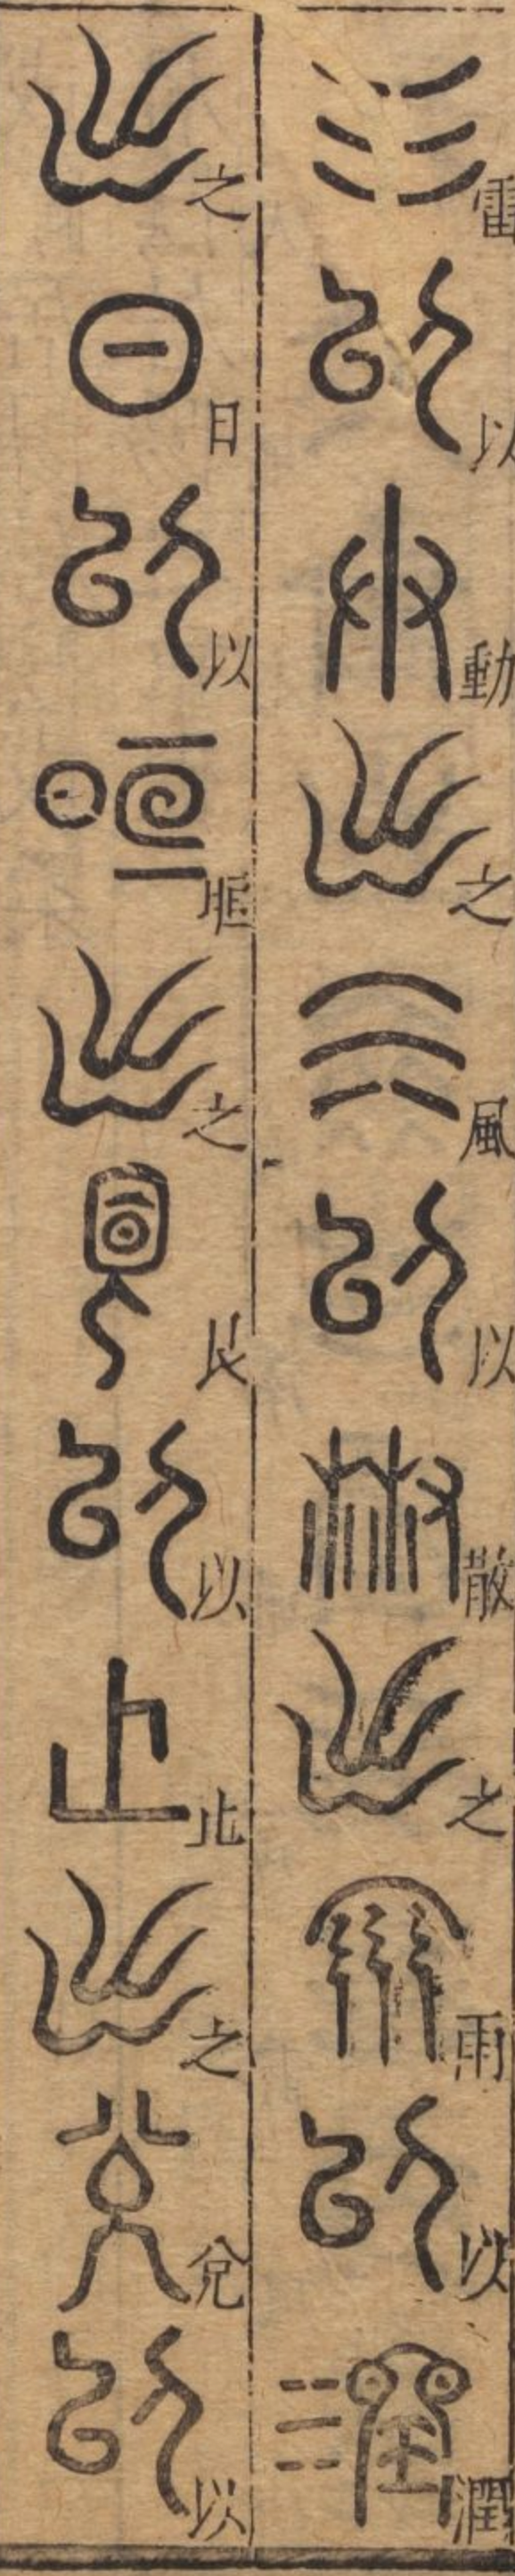 雷以動之風以散之雨以潤
之日以晅之艮以止之兌以